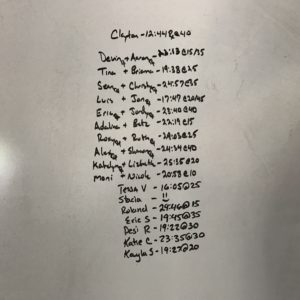 Clayton - 12:44@40
Devin + Aaron - 22:13@15/35
Tina + Briana - 19:38@25
Sean + Christy - 24:57@35
Luis + Jon - 17:47@20/45
Eric + Jordyn - 23:40@40
Adaline + Betz - 22:19@15
Roxy + Ruth - 29:03@25
Alex + Shannon - 24:34@40
Katelyn + Lizbeth - 25:35@20
Mani + Nicole - 20:58@10
Tessa V - 16:05@25
Stacia -
Roland - 29:46@15
Eric S - 19:45@35
Desi R - 19:22@30
Katie C - 23:35@30
Kayla S - 19:27@20